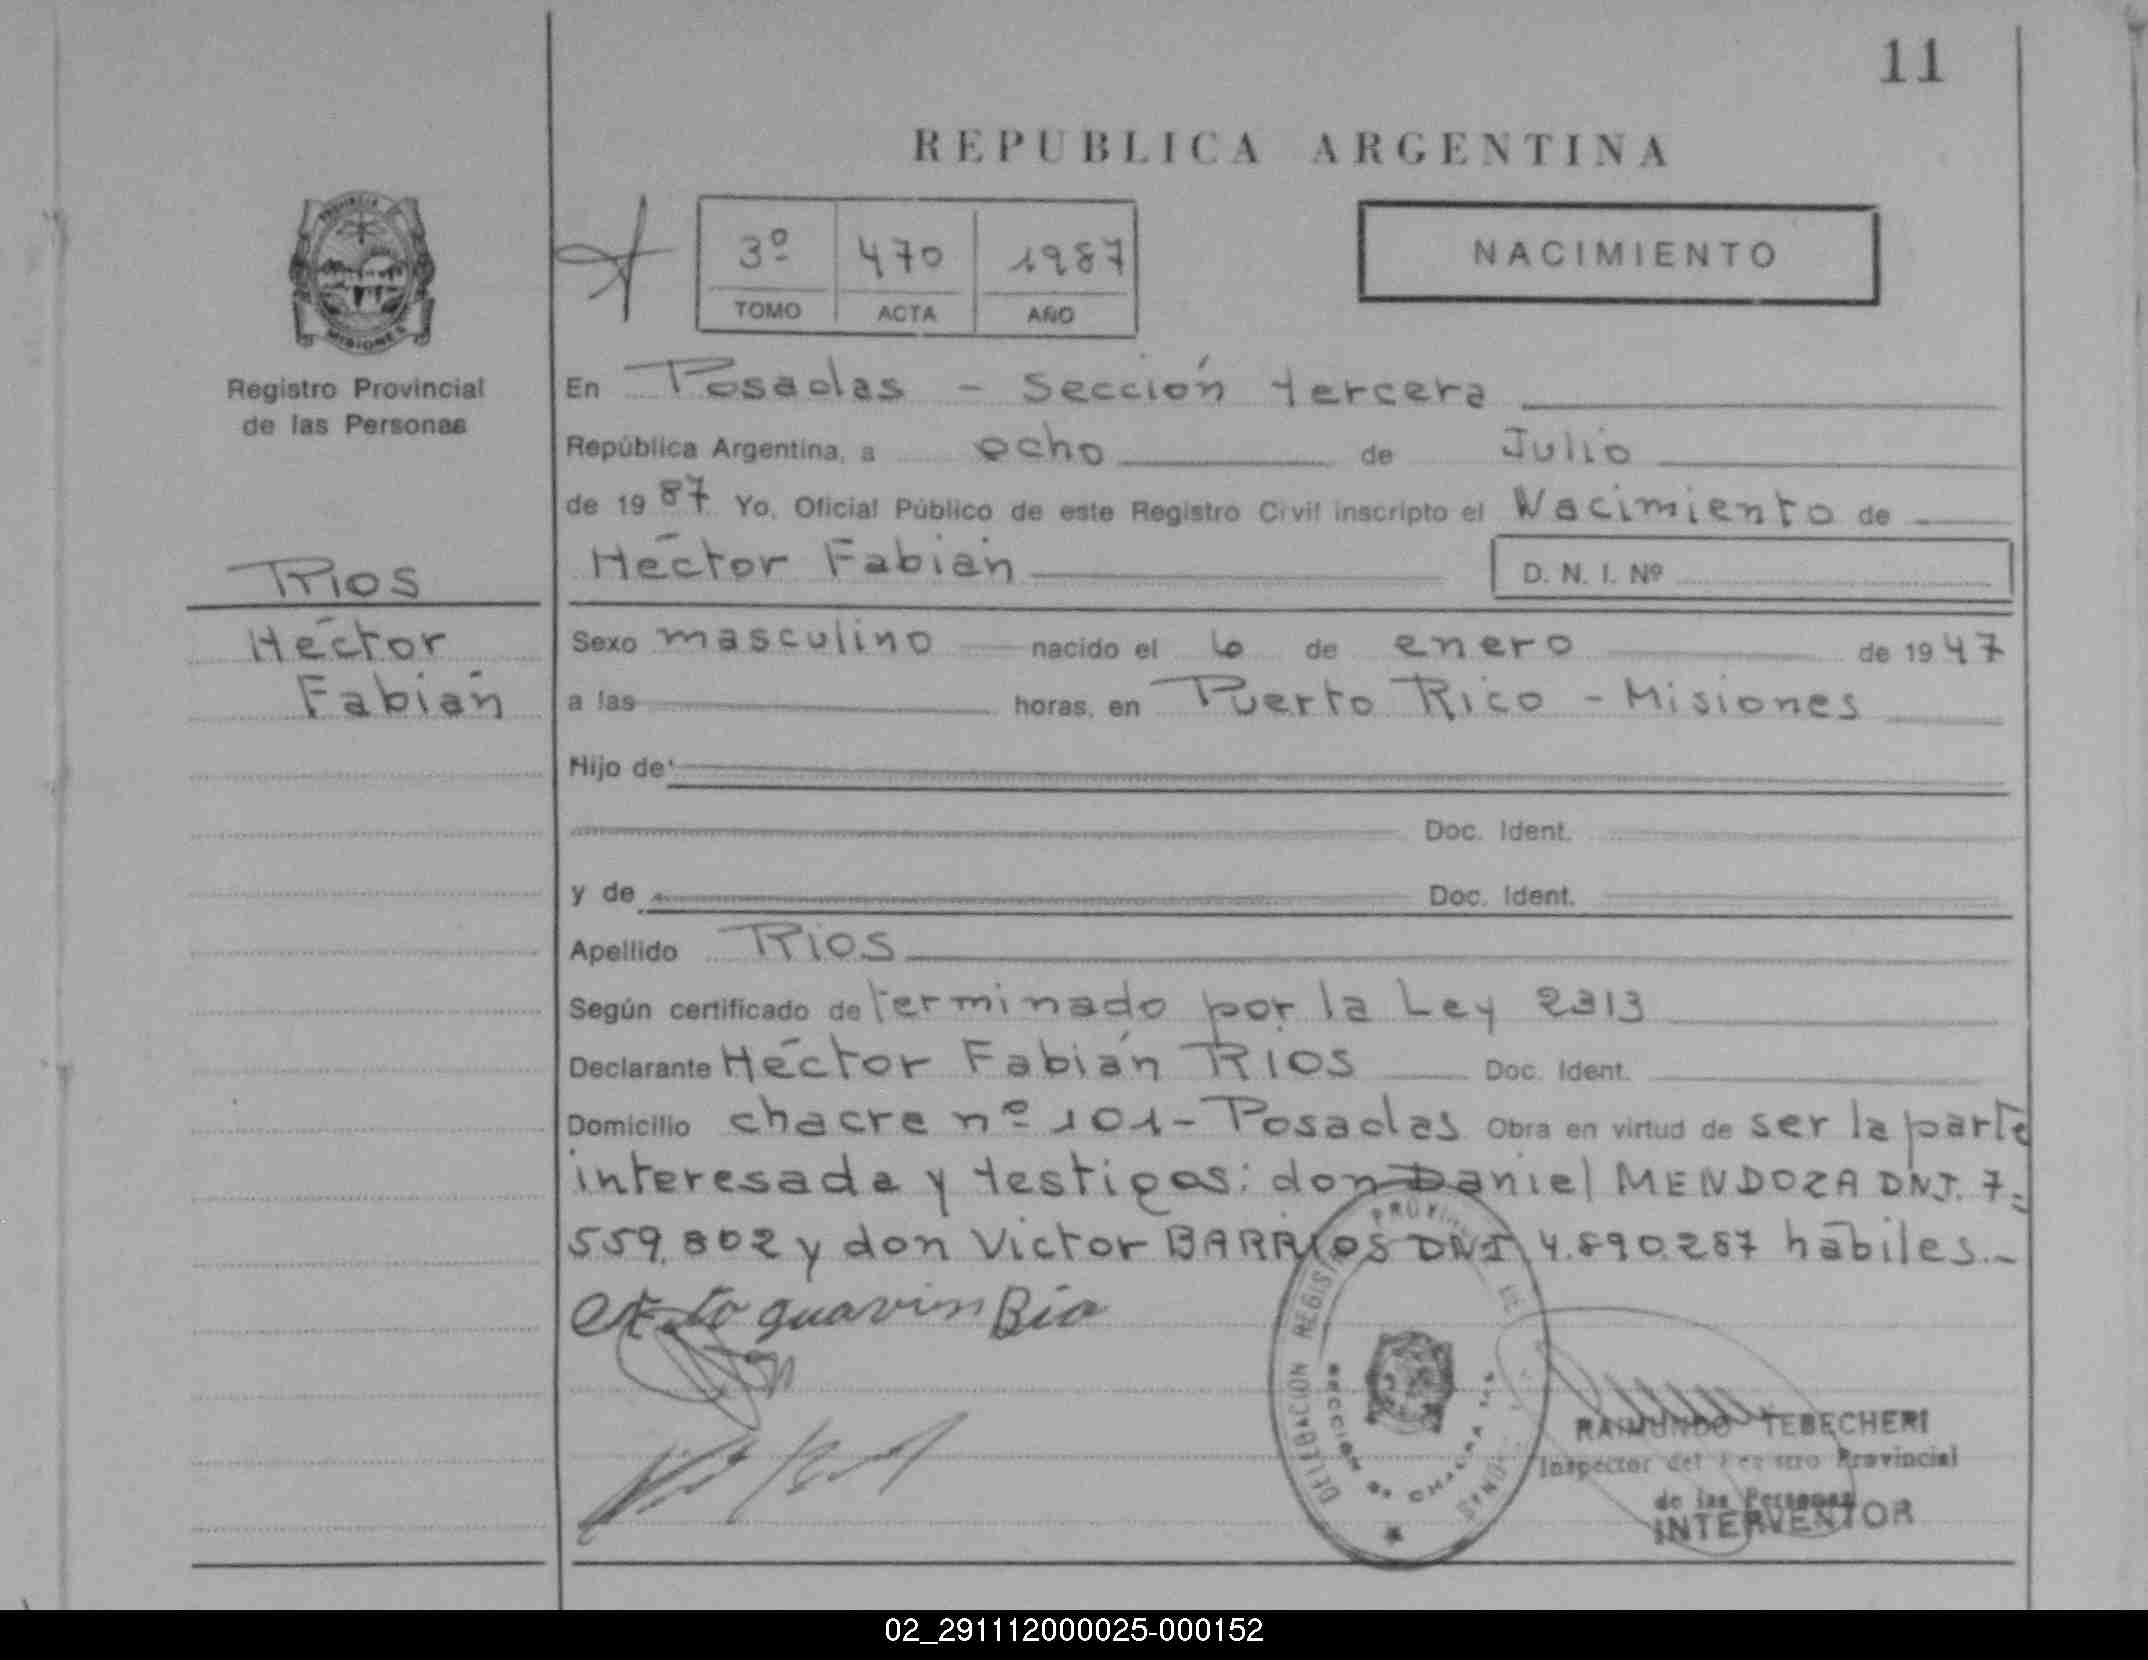 11
REPUBLICA ARGENTINA
PROVINCIA
MISIONES
3º 470 1987
TOMO ACTA AÑO
NACIMIENTO
Registro Provincial
de las Personas
En Posadas - Sección tercera
República Argentina, a ocho de Julio
de 19 87 Yo, Oficial Público de este Registro Civil inscripto el Nacimiento de
Héctor Fabián D. N. I. Nº
Rios
Héctor
Fabián
Sexo masculino nacido el 6 de enero de 19 47
a las horas, en Puerto Rico - Misiones
Hijo de
Doc. Ident.
y de Doc. Ident.
Apellido Rios
Según certificado de terminado por la Ley 2313
Declarante Héctor Fabián RIOS Doc. Ident.
Domicilio chacra nº 101 - Posadas Obra en virtud de ser la parte
interesada y testigos: don Daniel MENDOZA DNI. 7.
559.802 y don Victor BARRIOS DNI 4.890.287 hábiles.-
RAIMUNDO TEBECHERI
Inspector del Registro Provincial
de las Personas
INTERVENTOR
02_291112000025-000152